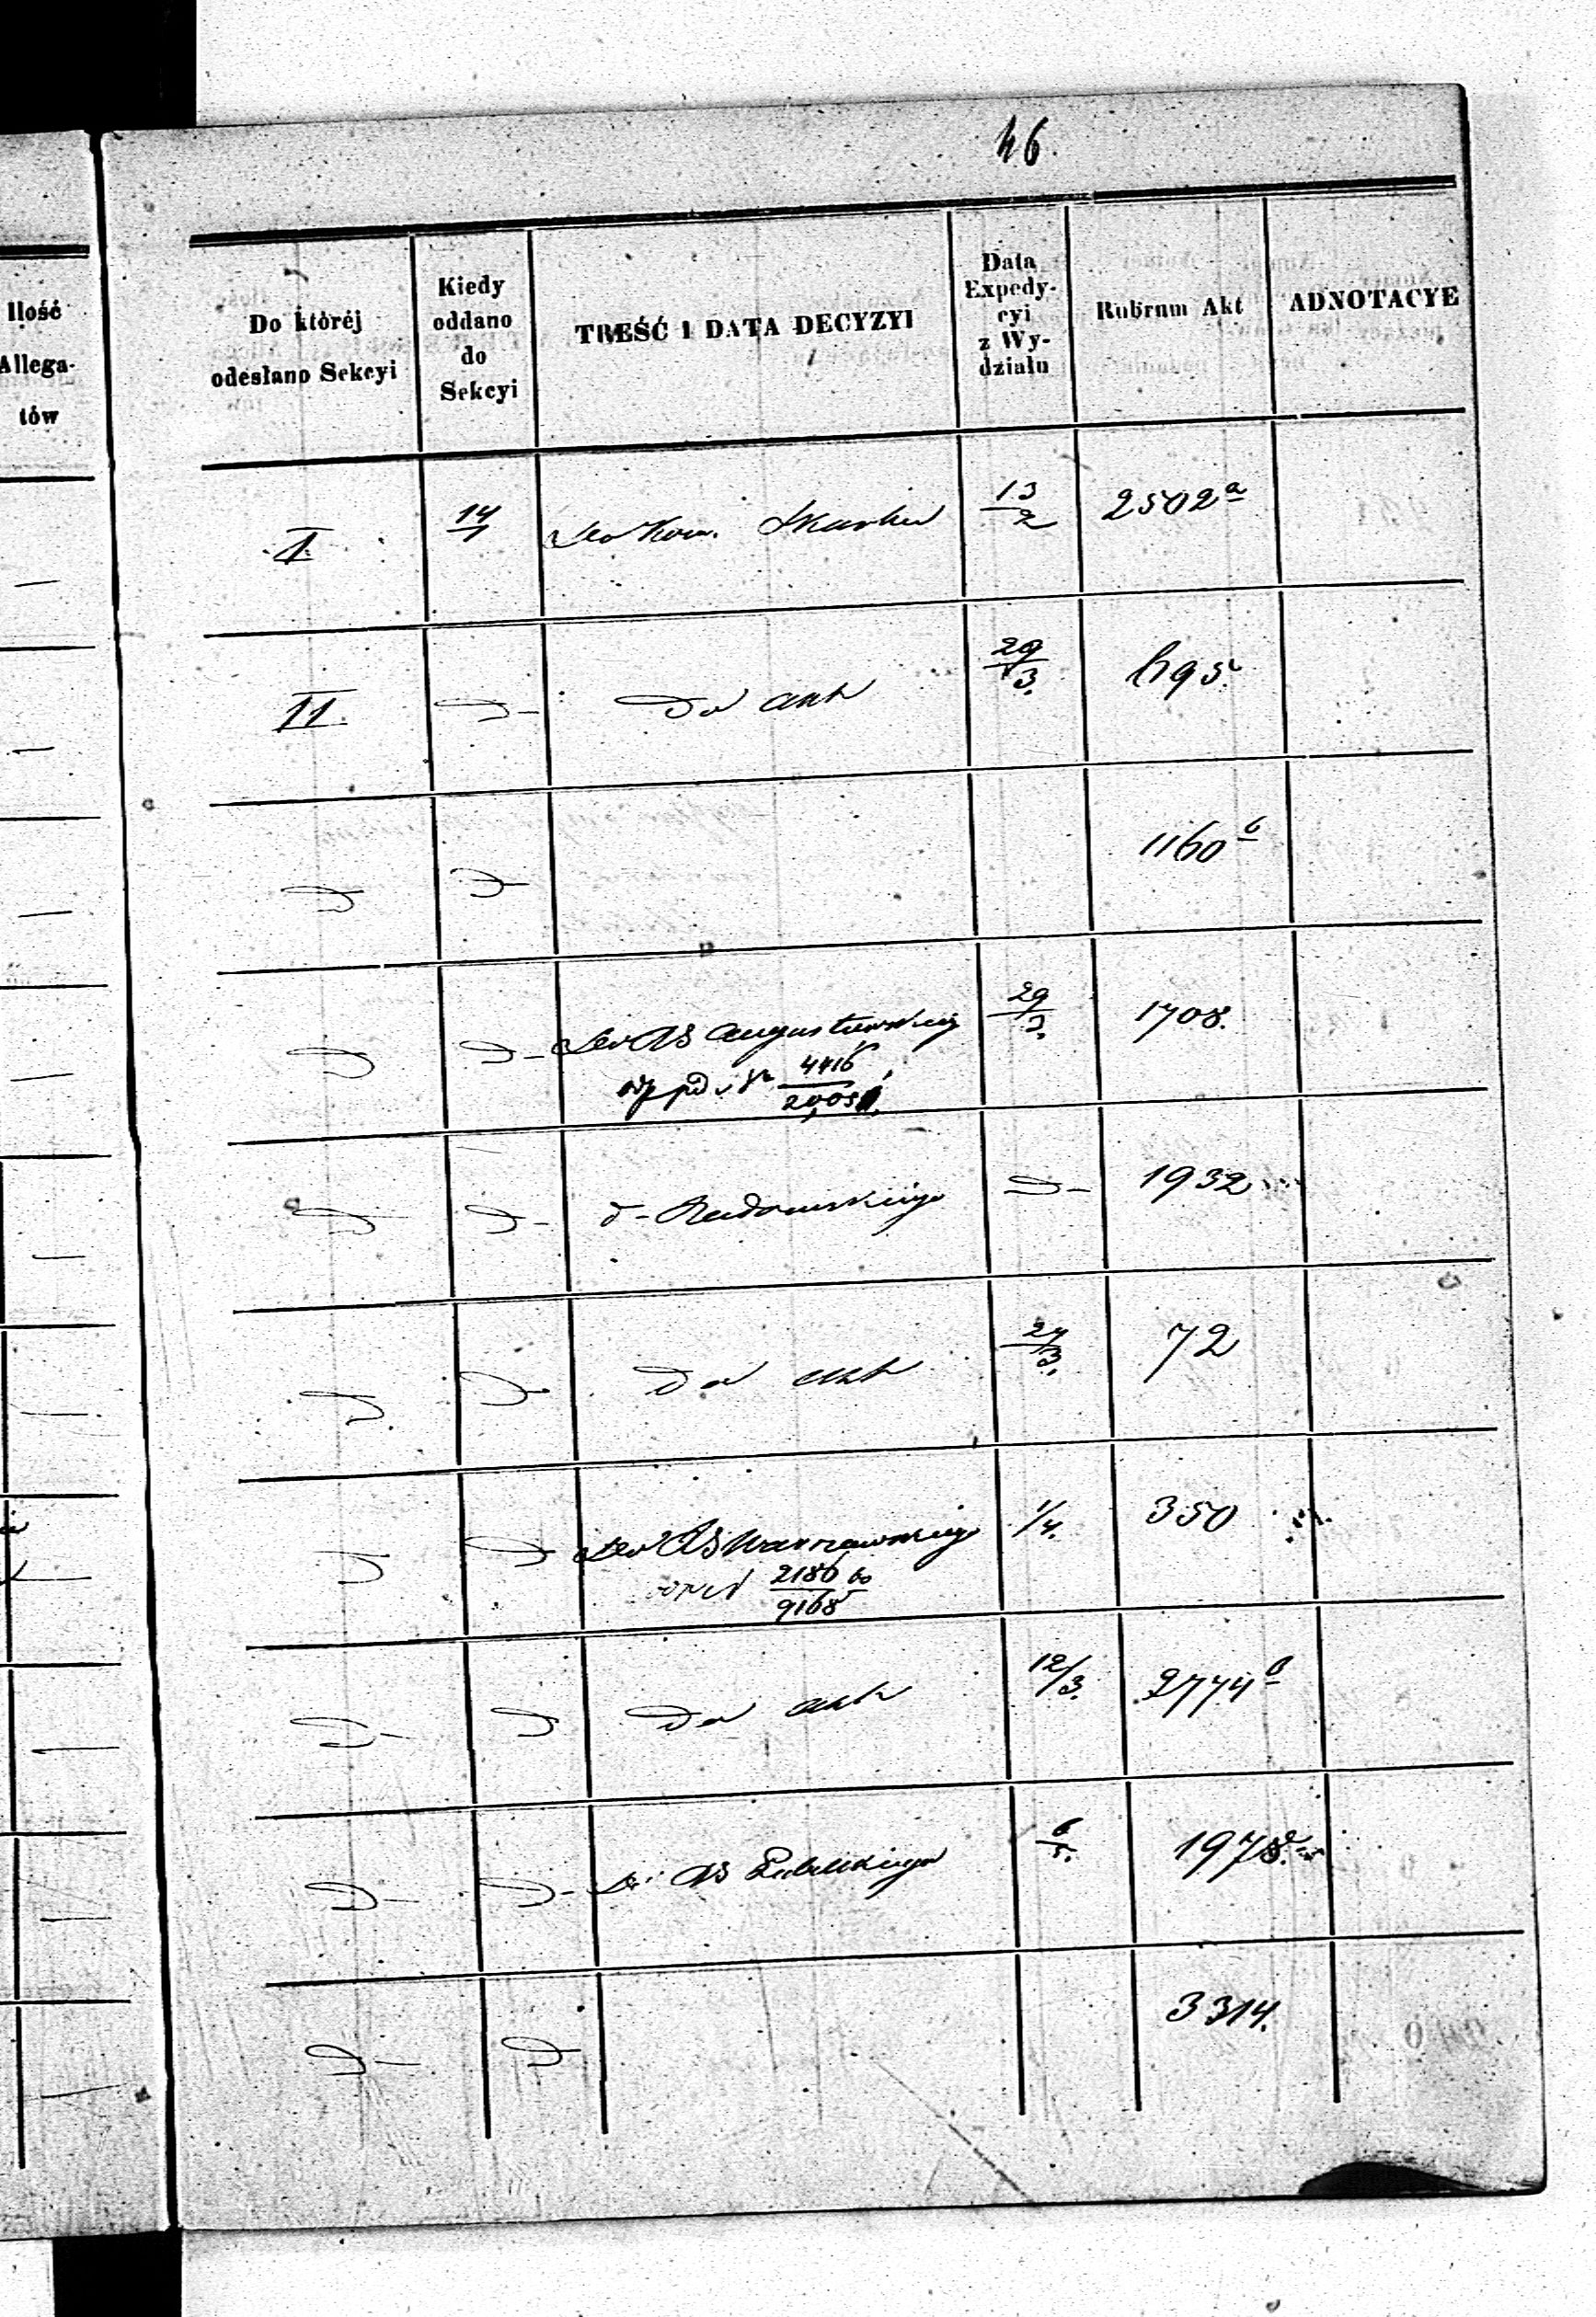 46.
Ilość
Allega-
tów
Do któréj
odesłano Sekcyi
Kiedy
oddano
do
Sekcyi
TREŚĆ I DATA DECYZYI
Data
Expedy-
cyi
z Wy-
działu
Rubrum Akt
ADNOTACYE
I 14/1 Do Kom. Skarbu 13/2 2502 a
II D- Do akt 29/3. 695
D D- 1160 b
D D- Do RG Augustowskiego 29/3. 1708.
4416
D D- d- Radomskiego D- 1932
D D- Do akt 24/3. 72
D D- Do RG Warszawskiego 1/4. 350
2186
9168
D- D Do akt 12/3. 2774 b
D- D- Do RG Lubelskiego 6/5. 1978.
D- D- 3314.